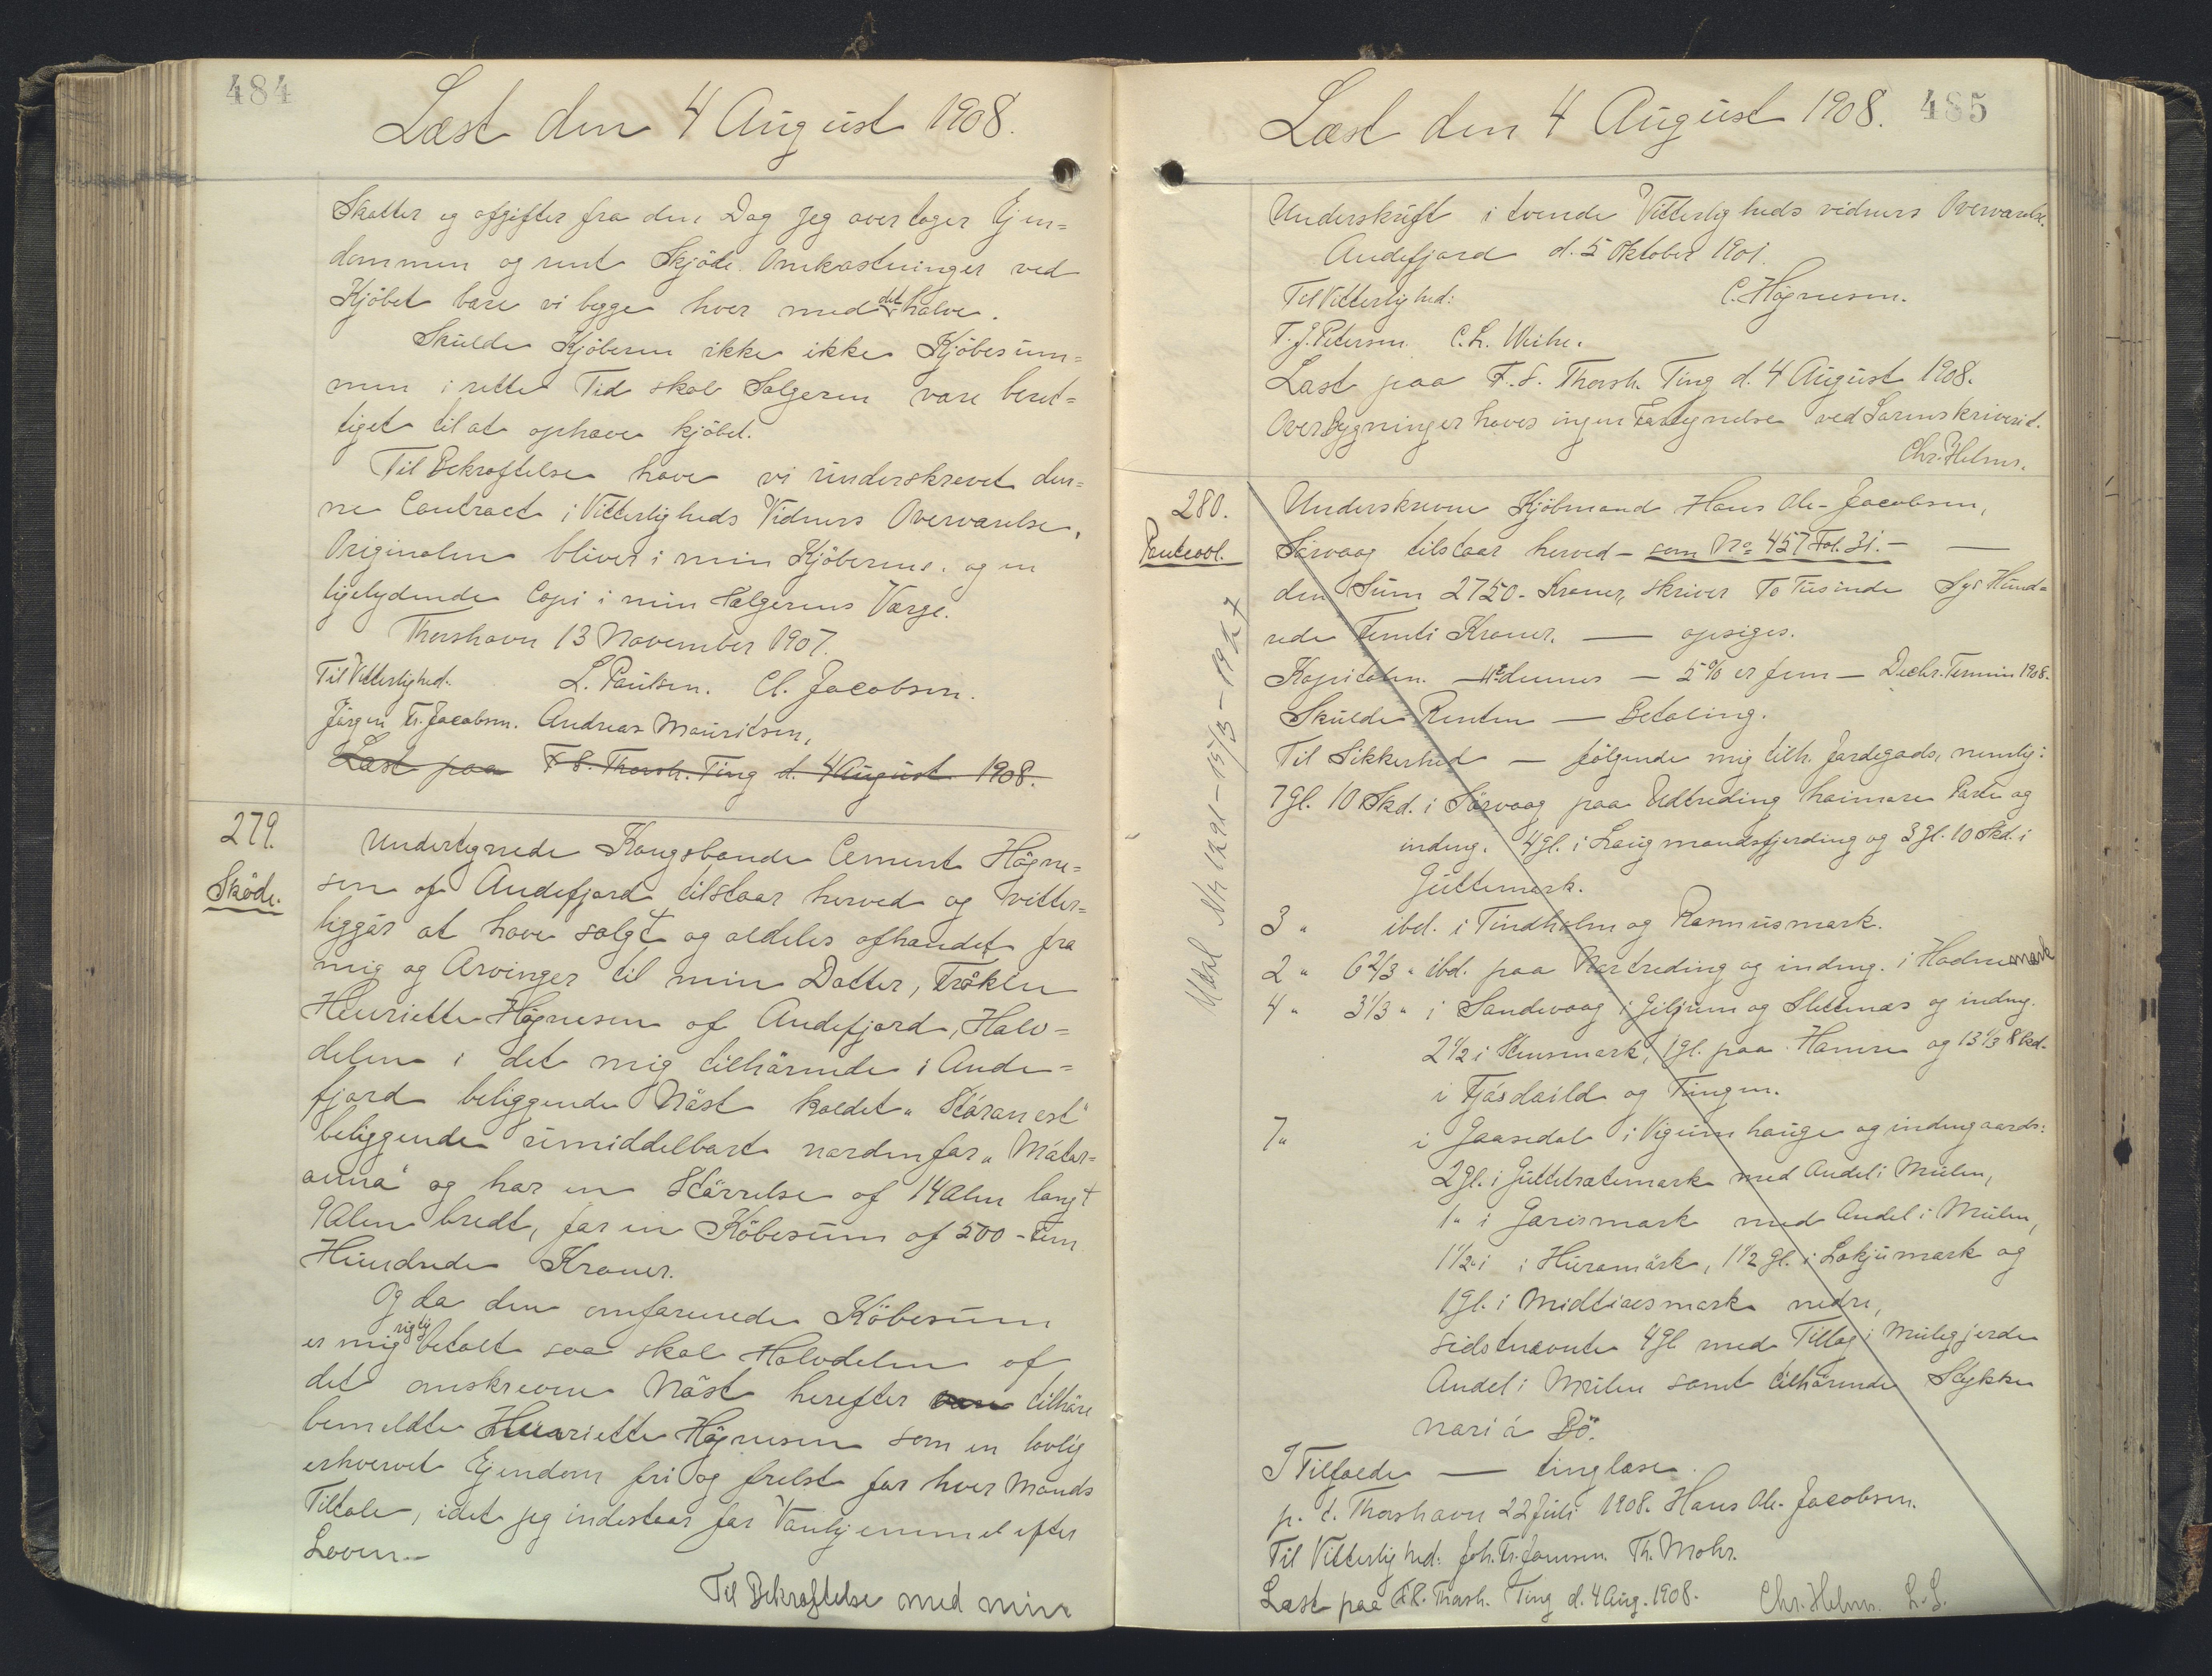 484
Læst den 4 August 1908.
Skatter og afgifter fra den Dag jeg overtager Ejen=
dommen og rent Skjöde. Omkostninger ved
Kjöbet bære vi begge hver med det halve.
Skulde Kjöberen ikke ikke Kjöbesum=
men i rette Tid skal Sælgeren være beret=
tiget til at ophæve kjöbet.
Til Bekræftelse have vi underskrevet den=
ne Contract i Vitterligheds Vidners Overværelse,
Originalen bliver i min Kjöberens. og en
ligelydende Copi i min Sælgerens Værge.
Thorshavn 13 November 1907.
Til Vitterlighed. L. Paulsen. Cl. Jacobsen.
Jörgen Fr. Jacobsen. Andreas Mouritsen,
Læst paa F. S. Thorsh. Ting d. 4 August 1908.
279.
Sköde.
Undertegnede Kongsbonde Cement Högne=
sen af Andefjord tilstaar herved og vitter=
liggör at have solgt og aldeles afhændet fra
mig og Arvinger til min Datter, Fröken
Henriette Högnesen af Andefjord, Halv=
delen i det mig tilhörende i Ande=
fjord beliggende Nöst kaldet "Stóranest"
beliggende umiddelbart nordenfor "Mátar=
ánna" og har en Störrelse af 14 Alen langt
9 Alen bredt, for en Köbesum af 500 - fem
Hundrede Kroner.
Og da den omförmede Köbesum
er mig rigtig betalt saa skal Halvdelen af
det omskrevne Nöst herefter være tilhöre
bemeldte Henriette Högnesen som en lovlig
erhvervet Ejendom fri og frelst for hver Mands
Tiltale, idet jeg indestaar for Vanhjemmel efter
Loven.-
Til Bekræftelse med min
485
Læst den 4 August 1908.
Underskrift i tvende Vitterligheds vidners Overværelse.
Andefjord d. 5 Oktober 1901.
Til Vitterlighed: C. Högnesen.
T. J. Petersen. C. L. Weihe.
Læst paa F. S. Thorsh. Ting d. 4 August 1908.
Over Bygninger haves ingen Fortegnelse ved Sorenskriveriet.
Chr. Helms.
280.
Panteobl.
Underskrevne Kjöbmand Hans Ole-Jacobsen,
Sörvaag tilstaar herved - som No 457 Fol. 31. -
den Sum 2750 - Kroner, skriver To Tusinde Syv Hund=
rede Femti Kroner. — opsiges.
Kapitalen — 5 % er fem — Decbr. Termin 1908.
Skulde Renten — Betaling.
Til Sikkerhed — fölgende mig tilh. Jordegods, nemlig:
7 Gl. 10 Skd. i Sörvaag paa Udtreding haimare Parti og
indmg. 4 Gl. i Laugmandsfjerding og 3 Gl. 10 Skd. i
Gúttemerk.
3 " ibd. i Tindholm og Rasmusmark.
2 " 6 2/3 " ibd. paa Nortreding og indmg. i Hadnemark
4 " 3 1/3 " i Sandevaag i Giljum og Slettenæs og indmg.
2 1/2 i Stensmark, 1 gl. paa Hamre og 13 1/3 Skd.
i Fjósdaild og Tungen.
7 " i Gaasedal i Vigum hauge og indengaards:
2 gl. i Guttelratimark med Andel i Mülen,
1 " i Garismark med Andel i Mülen,
1 1/2 " i i Húramörk, 1 1/2 gl. i Lokjumark og
1 gl. i Midtiaesmark nedre,
sidstnævnte 4 gl med Tillæg i Mülegjerde
Andel i Mülen samt tilhörende Stykke
nari á Bö.
I Tilfælde — tinglæse.
p. t. Thorshavn 22 Juli 1908. Hans Ole-Jacobsen.
Til Vitterlighed: Joh. Fr. Joensen. Th. Mohr.
Læst paa F. S. Thorsh. Ting d. 4 Aug. 1908. Chr. Helms. L. S.
Udsl. Nr 1291 - 15/3 - 1927